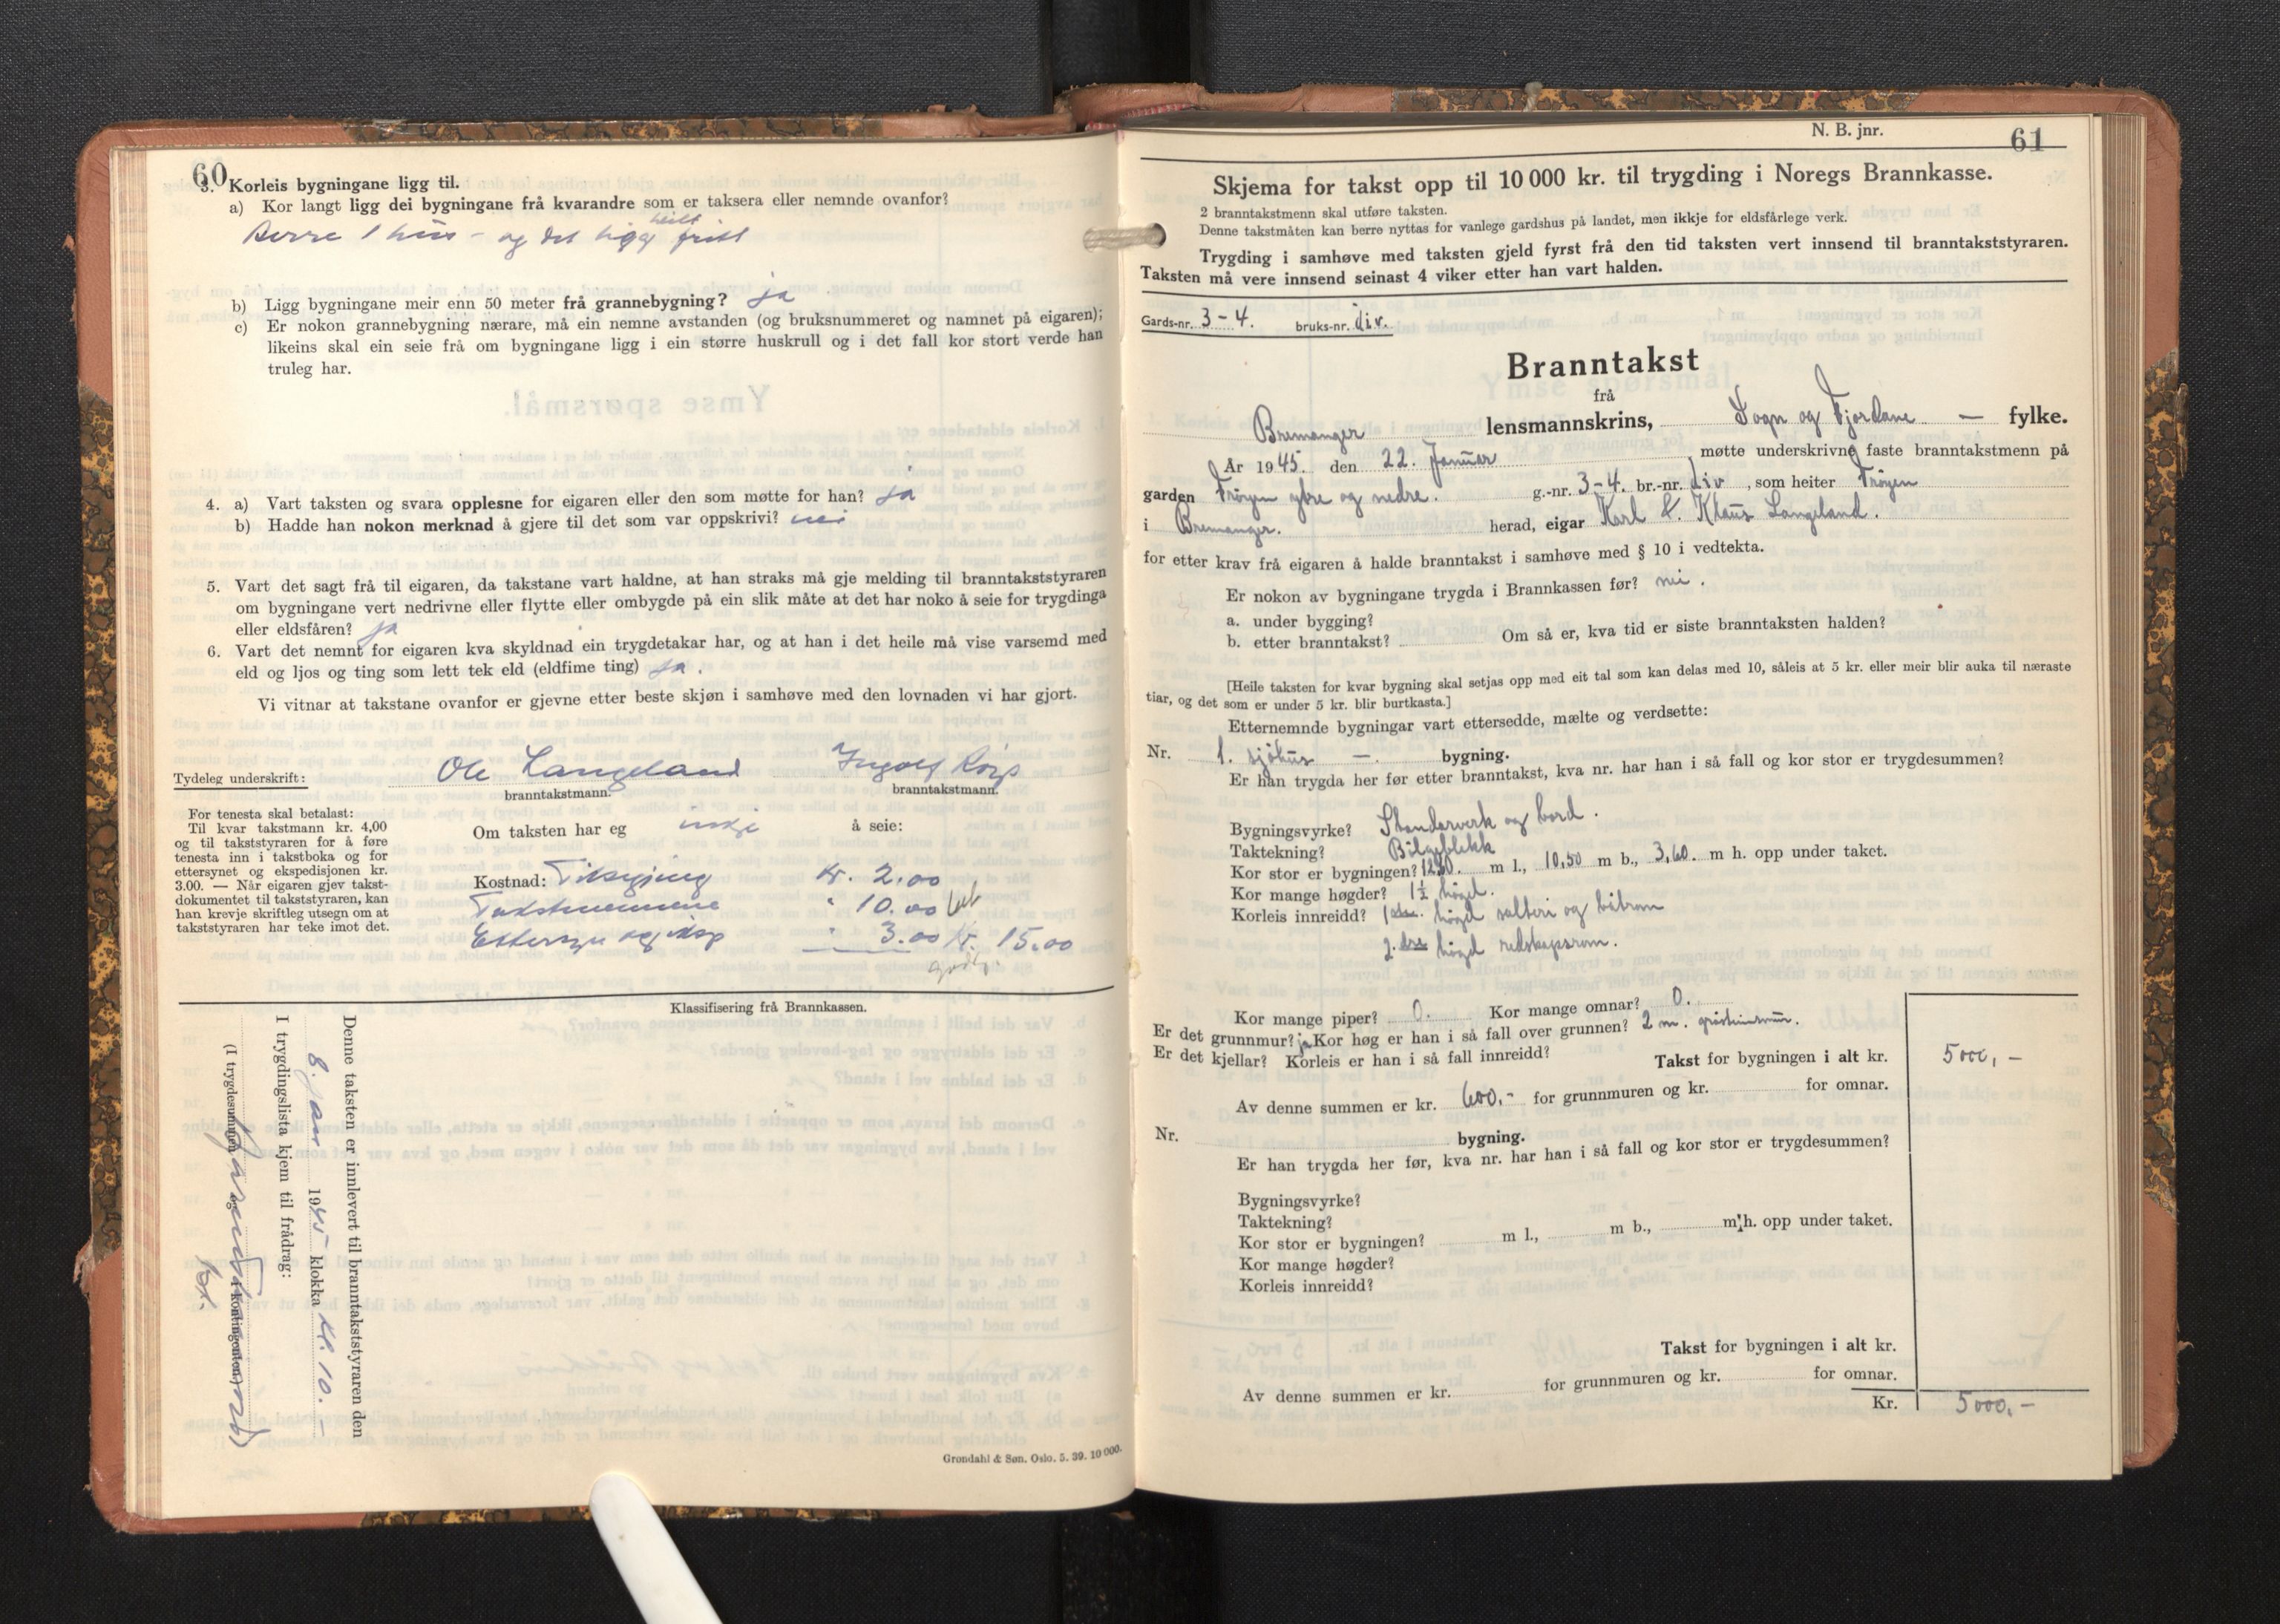 60
3. Korleis bygningane ligg til.
a) Kor langt ligg dei bygningane frå kvarandre som er taksera eller nemnde ovanfor?
heilt
Berre 1 hus - og det ligg fritt
b) Ligg bygningane meir enn 50 meter frå grannebygning? ja
c) Er nokon grannebygning nærare, må ein nemne avstanden (og bruksnummeret og namnet på eigaren);
likeins skal ein seie frå om bygningane ligg i ein større huskrull og i det fall kor stort verde han
truleg har.
4. a) Vart taksten og svara opplesne for eigaren eller den som møtte for han? ja
b) Hadde han nokon merknad å gjere til det som var oppskrivi? nei
5. Vart det sagt frå til eigaren, da takstane vart haldne, at han straks må gje melding til branntakststyraren
om bygningane vert nedrivne eller flytte eller ombygde på ein slik måte at det har noko å seie for trygdinga
eller eldsfåren? ja
6. Vart det nemnt for eigaren kva skyldnad ein trygdetakar har, og at han i det heile må vise varsemd med
eld og ljos og ting som lett tek eld (eldfime ting) ja.
Vi vitnar at takstane ovanfor er gjevne etter beste skjøn i samhøve med den lovnaden vi har gjort.
Tydeleg underskrift: Ole Langeland Ingolf
branntakstmann. branntakstmann.
For tenesta skal betalast:
Til kvar takstmann kr. 4,00
og til takststyraren for å føre
tenesta inn i takstboka og for
ettersynet og ekspedisjonen kr.
3.00. — Når eigaren gjev takst-
dokumentet til takststyraren, kan
han krevje skriftleg utsegn om at
takststyraren har teke imot det.
Om taksten har eg inkje å seie:
Kostnad: Tilsegjing kr. 2.00
Takstmennene " 10.00
Ettersyn og eksp " 3.00 kr. 15.00
Klassifisering frå Brannkassen.
Denne taksten er innlevert til branntakststyraren den
8. jan 1945 klokka kl. 10.-
I trygdingslista kjem til frådrag:
(I trygdesummen og i kontingenten)
Grøndahl & Søn. Oslo. 5. 39. 10 000.
N. B. jnr.
61
Skjema for takst opp til 10 000 kr. til trygding i Noregs Brannkasse.
2 branntakstmenn skal utføre taksten.
Denne takstmåten kan berre nyttas for vanlege gardshus på landet, men ikkje for eldsfårlege verk.
Trygding i samhøve med taksten gjeld fyrst frå den tid taksten vert innsend til branntakststyraren.
Taksten må vere innsend seinast 4 viker etter han vart halden.
Gards-nr. 3-4. bruks-nr. div.
Branntakst
frå
Bremanger lensmannskrins, Sogn og Fjordane — fylke.
År 1945. den 22. Januar møtte underskrivne faste branntakstmenn på
garden Frøyen ytre og nedre. g.-nr. 3-4. br.-nr. div, som heiter Frøyen
i Bremanger. herad, eigar Karl & Klaus Langeland.
for etter krav frå eigaren å halde branntakst i samhøve med § 10 i vedtekta.
Er nokon av bygningane trygda i Brannkassen før? nei.
a. under bygging?
b. etter branntakst? Om så er, kva tid er siste branntaksten halden?
[Heile taksten for kvar bygning skal setjas opp med eit tal som kan delas med 10, såleis at 5 kr. eller meir blir auka til næraste
tiar, og det som er under 5 kr. blir burtkasta.]
Etternemnde bygningar vart ettersedde, mælte og verdsette:
Nr. 1. sjøhus — bygning.
Er han trygda her før etter branntakst, kva nr. har han i så fall og kor stor er trygdesummen?
Bygningsvyrke? Standarverk og bord.
Taktekning? Bølgeblekk
Kor stor er bygningen? 12,30. m l., 10,50 m b., 3,60. m h. opp under taket.
Kor mange høgder? 1½ høgd.
Korleis innreidd? 1 høgd salteri og bibrom
2. høgd redskapsrom.
Kor mange piper? 0. Kor mange omnar? 0.
Er det grunnmur? ja Kor høg er han i så fall over grunnen? 2 m. gråsteinsmur.
Er det kjellar? Korleis er han i så fall innreidd? Takst for bygningen i alt kr. 5000,-
Av denne summen er kr. 600.- for grunnmuren og kr. for omnar.
Nr. bygning.
Er han trygda her før, kva nr. har han i så fall og kor stor er trygdesummen?
Bygningsvyrke?
Taktekning?
Kor stor er bygningen? m l., m b., m h. opp under taket.
Kor mange høgder?
Korleis innreidd?
Takst for bygningen i alt kr.
Av denne summen er kr. for grunnmuren og kr. for omnar.
Kr. 5000,-